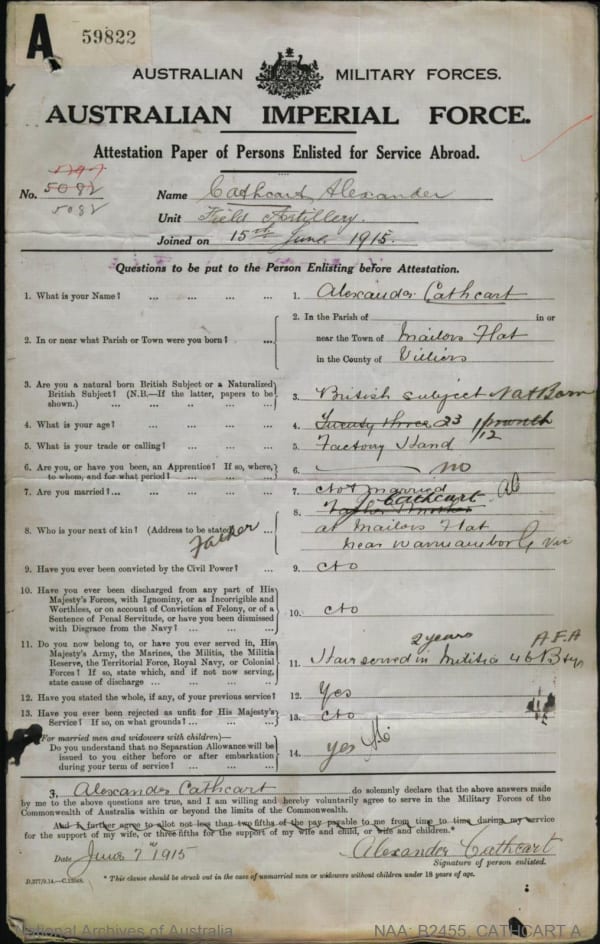 A
59822
AUSTRALIAN MILITARY FORCES.
AUSTRALIAN IMPERIAL FORCE.
Attestation Paper of Persons Enlisted for Service Abroad.
No. 5082
5082
Name Cathcart, Alexander
Unit Field Artillery.
Joined on 15th June 1915.
Questions to be put to the Person Enlisting before Attestation.
1. What is your Name? ... ... ... ... 1. Alexander Cathcart
2. In or near what Parish or Town were you born? ... 2. In the Parish of in or
near the Town of Mailors Flat
in the County of Villiers
3. Are you a natural born British Subject or a Naturalized
British Subject? (N.B.—If the latter, papers to be
shown.) ... ... ... ... 3. British subject Nat Born
4. What is your age? ... ... ... ... 4. Twenty three 23 1/12 1 month
5. What is your trade or calling? ... ... ... 5. Factory Hand
6. Are you, or have you been, an Apprentice? If so, where,
to whom, and for what period? ... ... ... 6. no
7. Are you married? ... ... ... ... 7. Not married
8. Who is your next of kin? (Address to be stated) 8. Cathcart AC
Father
at Mailors Flat
near Warrnambool Vic
9. Have you ever been convicted by the Civil Power? ... 9. No
10. Have you ever been discharged from any part of His
Majesty's Forces, with Ignominy, or as Incorrigible and
Worthless, or on account of Conviction of Felony, or of a
Sentence of Penal Servitude, or have you been dismissed
with Disgrace from the Navy? ... ... ... 10. No
11. Do you now belong to, or have you ever served in, His
Majesty's Army, the Marines, the Militia, the Militia
Reserve, the Territorial Force, Royal Navy, or Colonial
Forces? If so, state which, and if not now serving,
state cause of discharge ... ... ... 11. 2 years A.F.A
Have served in Militia 46 Bty
12. Have you stated the whole, if any, of your previous service? 12. Yes
13. Have you ever been rejected as unfit for His Majesty's
Service? If so, on what grounds? ... ... 13. No
(For married men and widowers with children)—
Do you understand that no Separation Allowance will be
issued to you either before or after embarkation
during your term of service? ... ... 14. yes
I, Alexander Cathcart do solemnly declare that the above answers made
by me to the above questions are true, and I am willing and hereby voluntarily agree to serve in the Military Forces of the
Commonwealth of Australia within or beyond the limits of the Commonwealth.
And I further agree to allot not less than two-fifths of the pay payable to me from time to time during my service
for the support of my wife, or three-fifths for the support of my wife and child, or wife and children.*
Date June 7th 1915
Alexander Cathcart
Signature of person enlisted.
* This clause should be struck out in the case of unmarried men or widowers without children under 18 years of age.
National Archives of Australia
NAA: B2455, CATHCART A